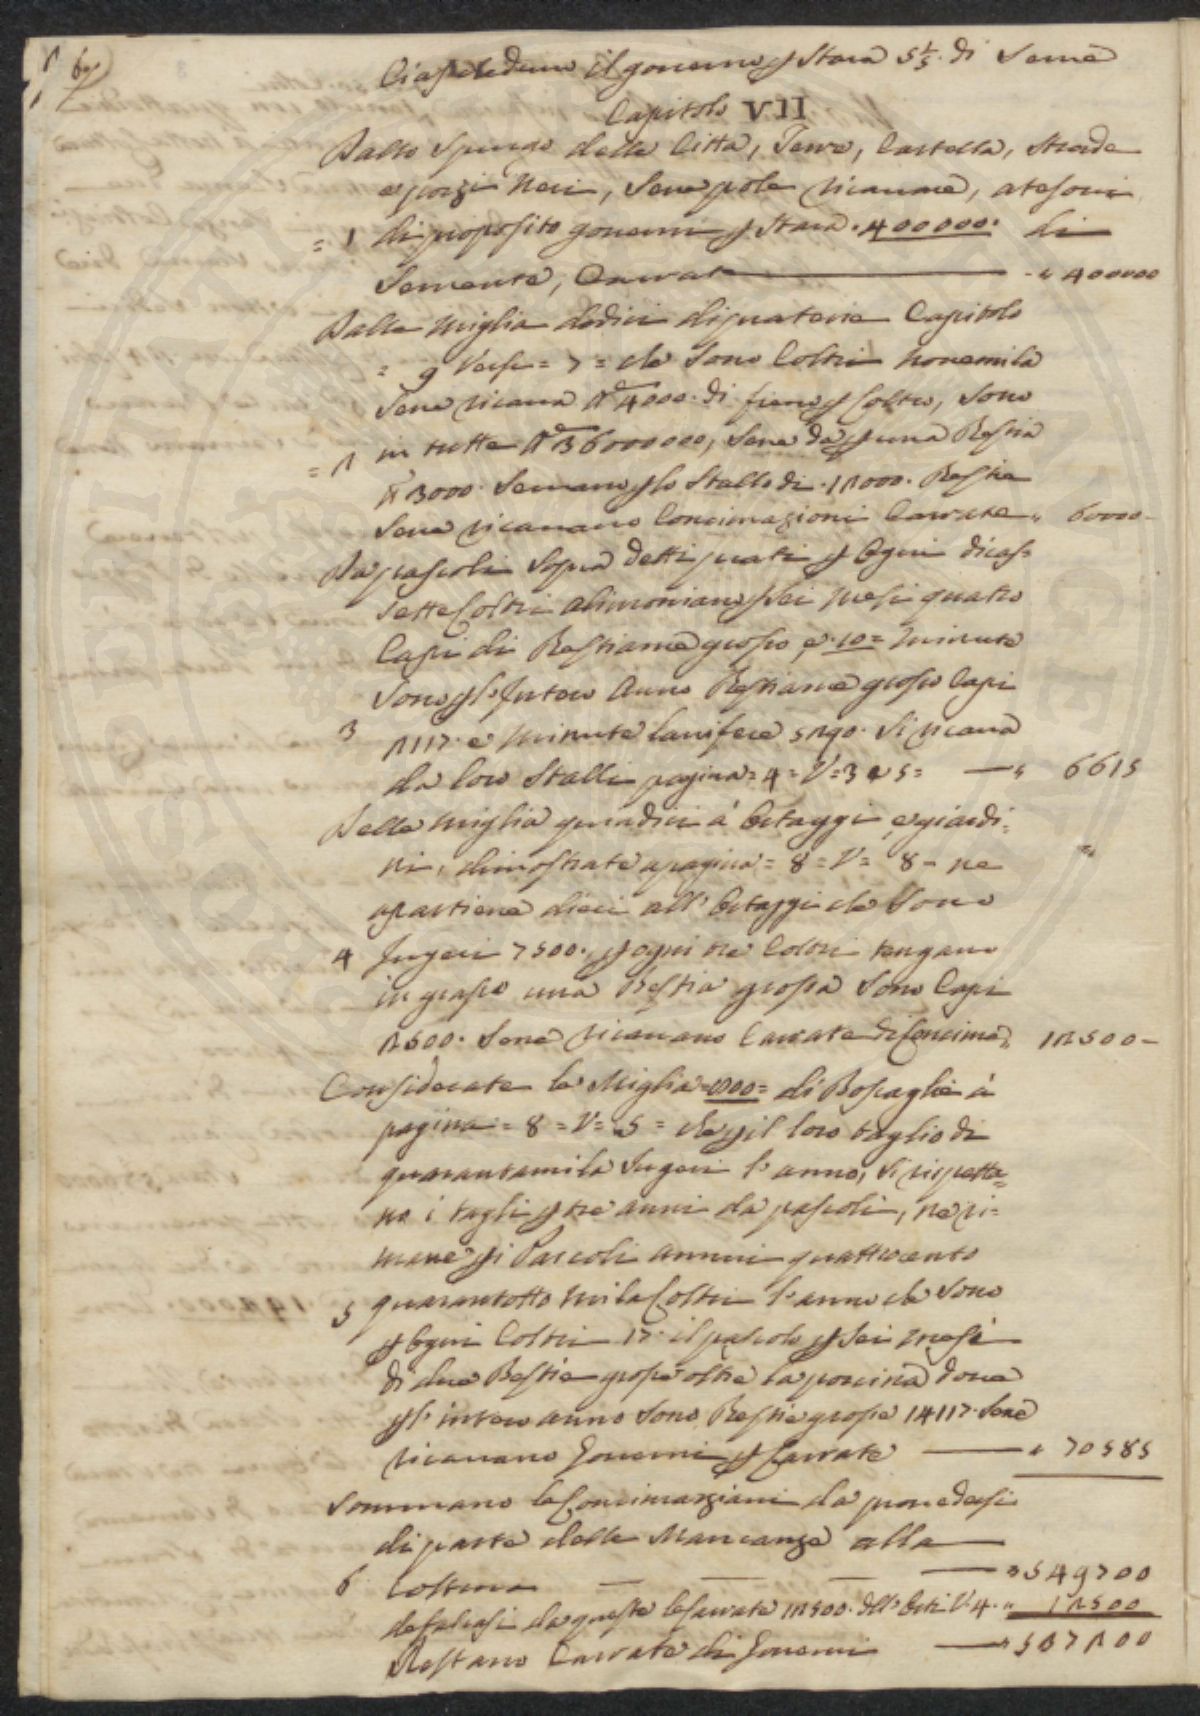 Ciascheduno il governo p Stara 5 1/5. di Seme
Capitolo VII
Dallo Spurgo delle Città, Terre, Castella, Strade
e pozzi Neri, Sene pole ricavare, atesori
= 1 di proposito governi p Stara. 400000. di
Semente, Carrate " 400000
Dalle Miglia dodici di praterie Capitolo
= 9 Vers = 7 = che Sono Coltri Novemila
Sene ricava 4000. di fieno p Coltre, Sono
= 2 in tutte 36000000, Sene da p una Bestia
3000. Servano p lo Stallo di. 12000. Bestie
Sene ricavano Concimazioni Carrate " 60000 -
Da pascoli Sopra detti prati p Ogni dicas=
Sette Coltri alimoniano p Sei Mesi quatro
Capi di Bestiame grosso, e. 10 = Minute
Sono p l'Intero Anno Bestiame grosso Capi
3 2117. e Minute lanifere 5290. Si ricava
da loro Stalli pagina = 4 = V = 3 e 5 = " 6615
Delle Miglia quindici à Ortaggi, e giardi=
ni, dimostrate a pagina = 8 = V = 8 - ne
apartiene dieci all' Ortaggi che Sono
4 Jugeri 7500. p ogni tre Coltri tengano
in grasso una Bestia grossa Sono Capi
2500. Sene ricavano Carrate di Concime " 12500 -
Considerate le Miglia = 1800 = di Boscaglie à
pagina = 8 = V = 5 = che p il loro taglio di
quarantamila Jugeri l'anno, Si rispetta=
no i tagli p tre anni da pascoli, ne ri=
mane p i Pascoli annui quattrocento
5 quarantotto mila Coltri l'anno che Sono
p Ogni Coltri 17. il pascolo p Sei Mesi
di due Bestie grosse oltre la porcina dove
p l'intero anno Sono Bestie grosse 14117. Sene
ricavano Governi p Carrate " 70585
Sommano le Concimazioni da provedersi
di parte delle Mancanze alla
6 Coltura " 549700
defalcasi da queste le Carrate 12500. dell' Orti V. 4. " 12500
Restano Carrate di Governi " 537200